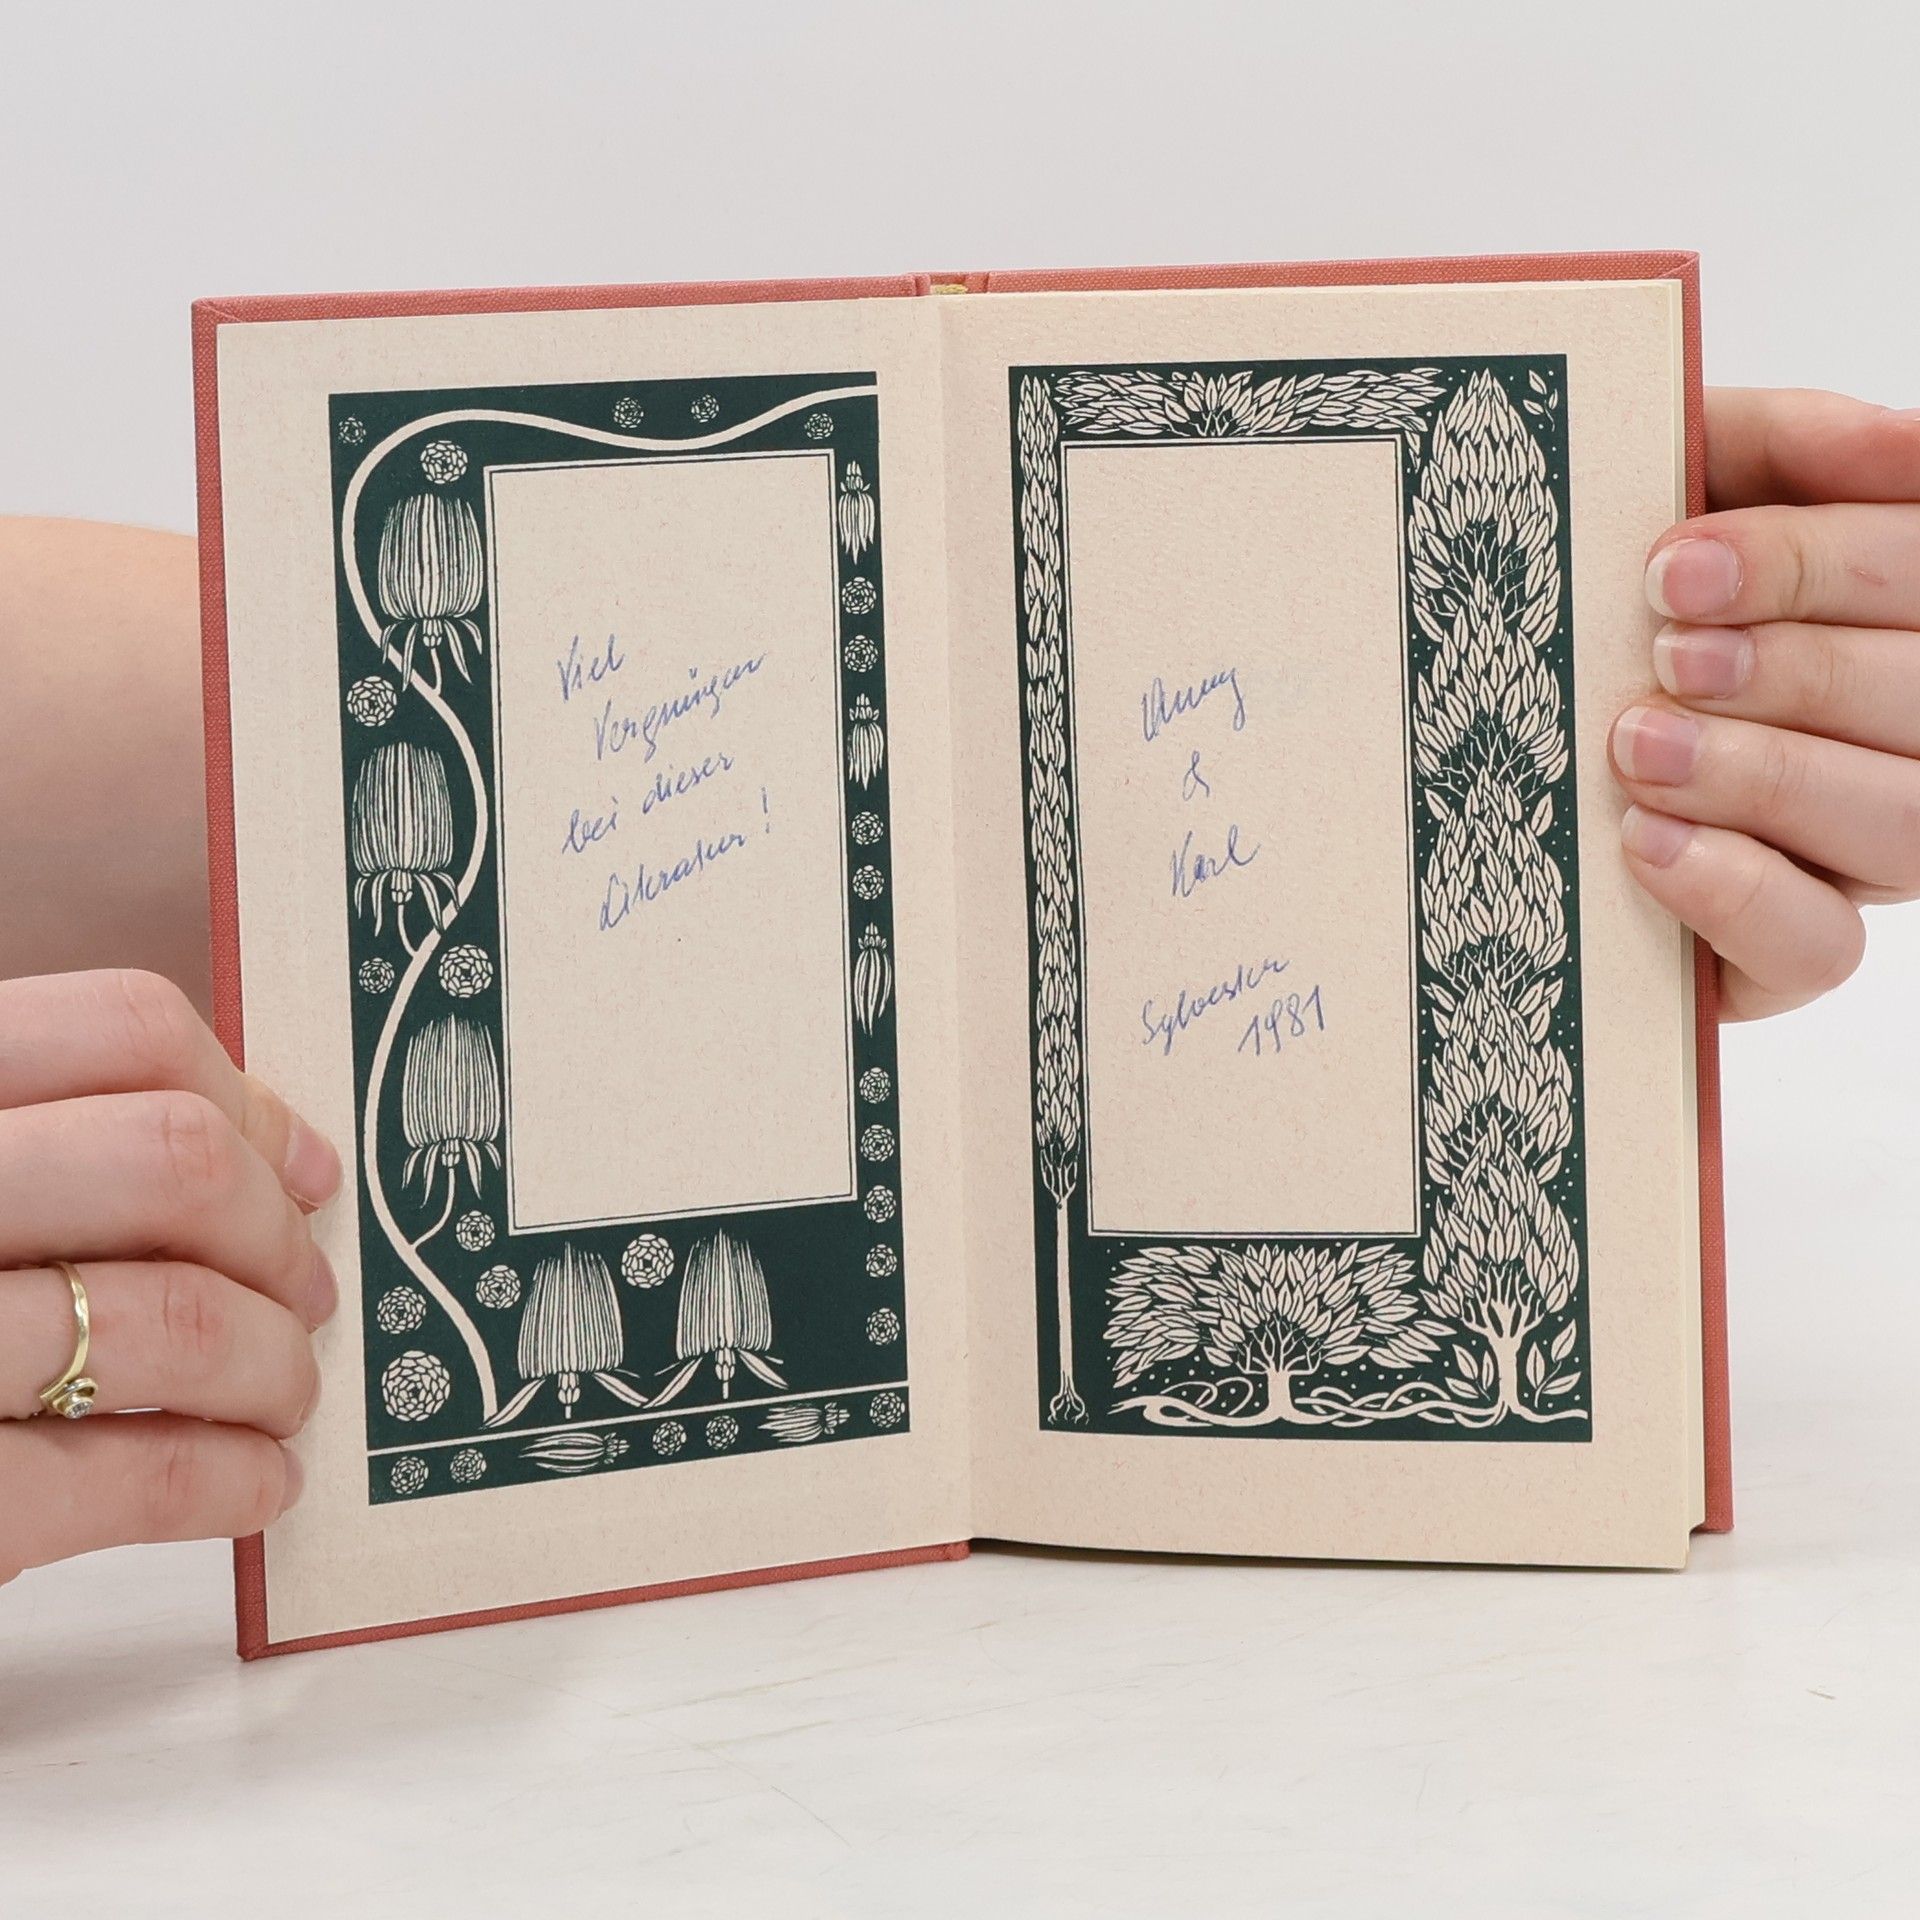 Viel
Vergnügen
bei dieser
Literatur!
&
Karl
Sylvester
1981